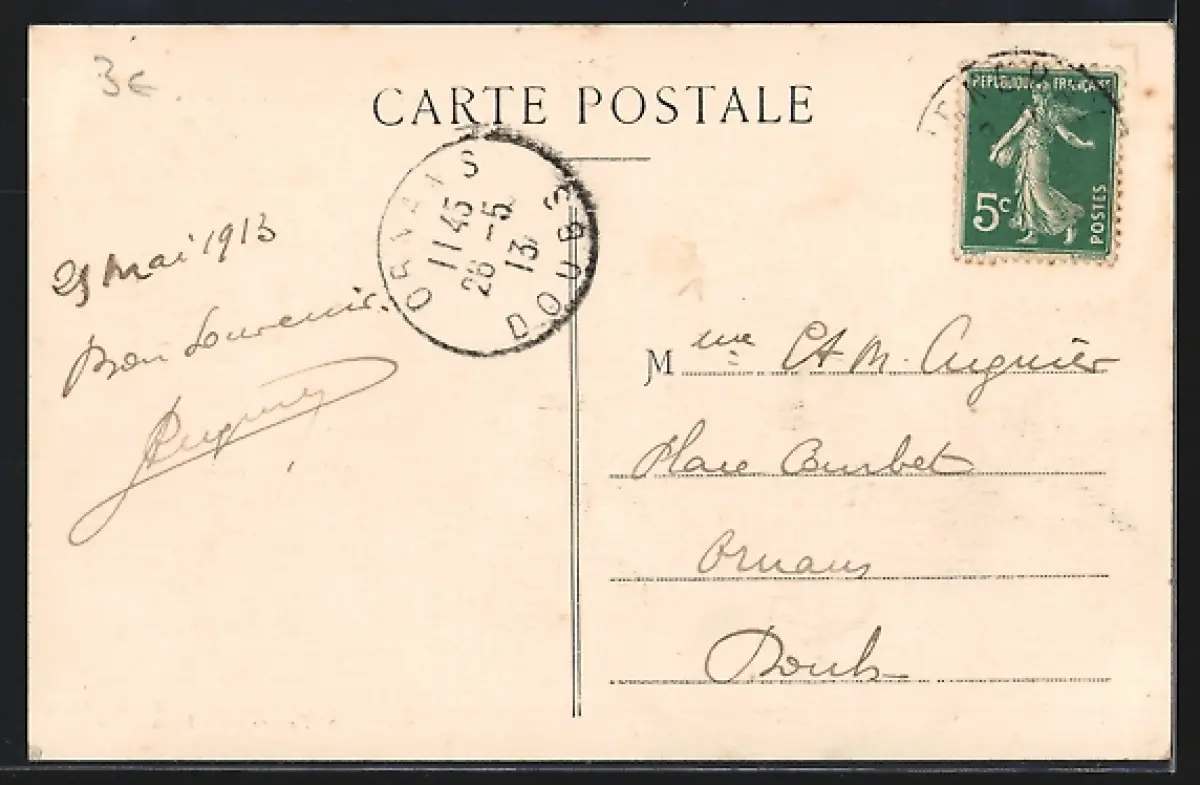 3€
CARTE POSTALE
REPUBLIQUE FRANÇAISE
5c
POSTES
ORNANS
11 45
26 -5
13
DOUBS
25 Mai 1913
Bon Souvenir.
Mme
Place Courbet
Ornans
Doubs